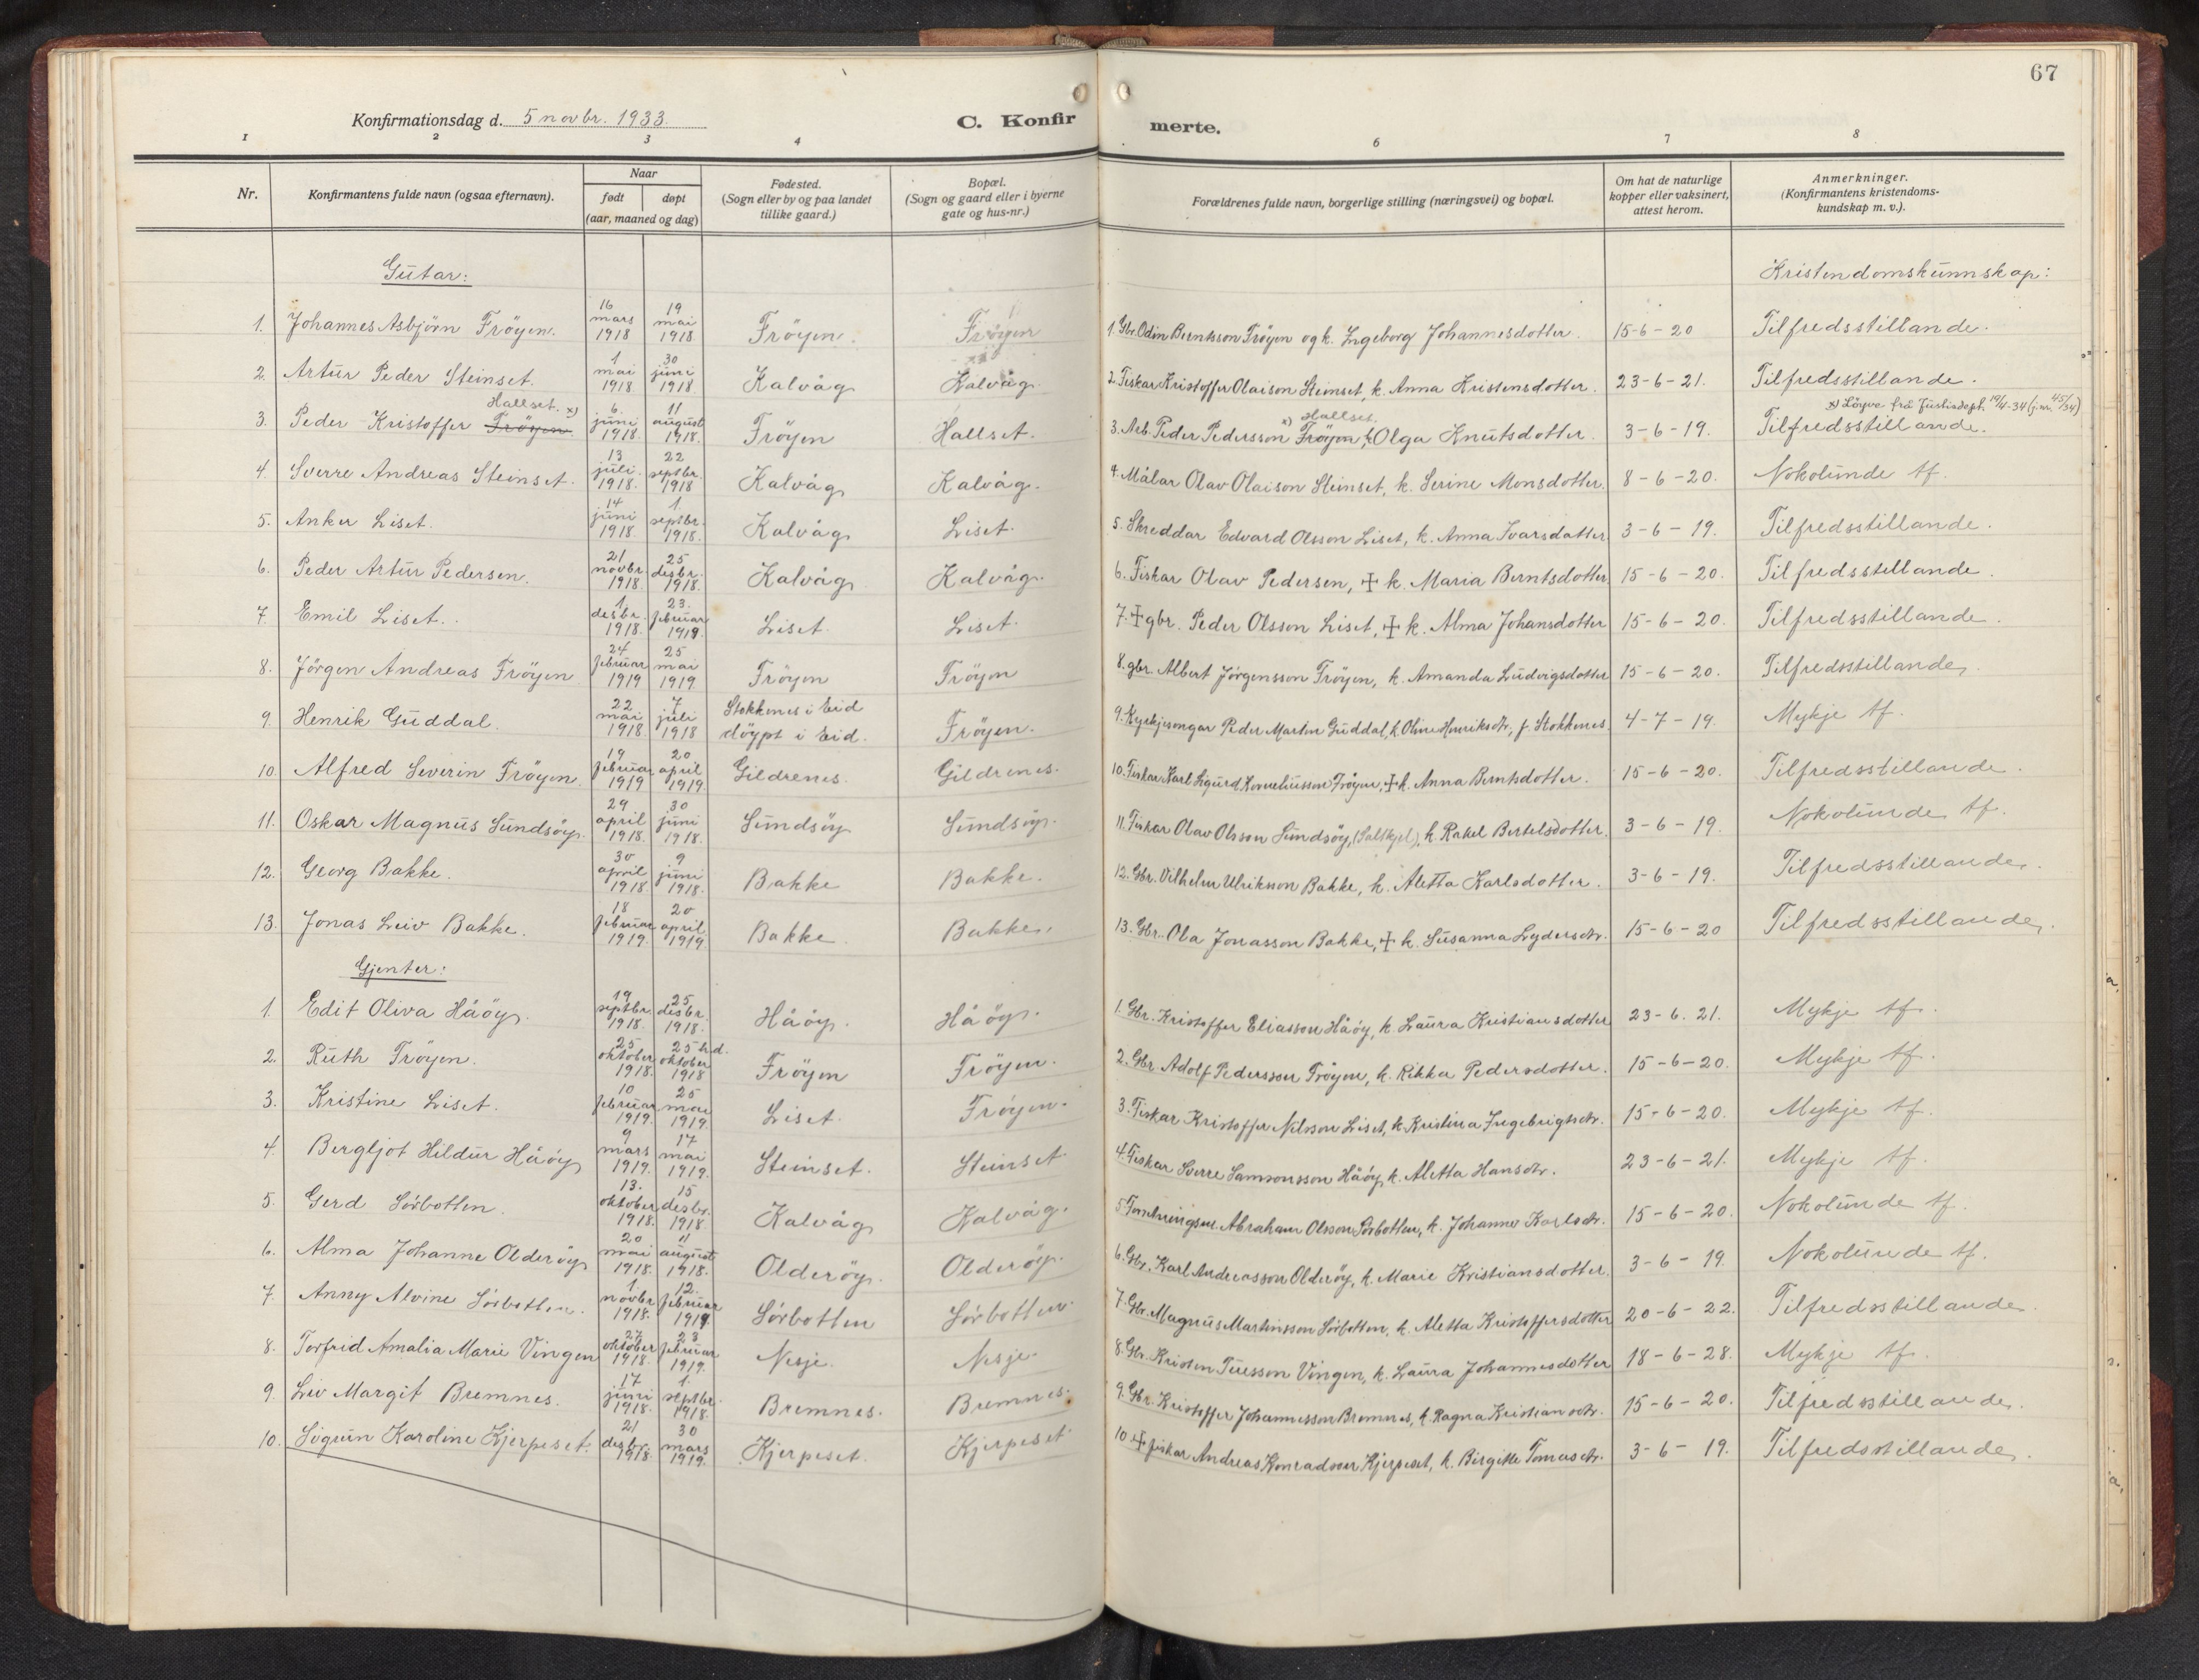 67
Konfirmationsdag d. 5 novbr. 1933.
C. Konfirmerte.
1 2 3 4 6 7 8
Nr.
Konfirmantens fulde navn (ogsaa efternavn).
Naar
født døpt
(aar, maaned og dag)
Fødested.
(Sogn eller by og paa landet
tillike gaard.)
Bopæl.
(Sogn og gaard eller i byerne
gate og hus-nr.)
Forældrenes fulde navn, borgerlige stilling (næringsvei) og bopæl.
Om hat de naturlige
kopper eller vaksinert,
attest herom.
Anmerkninger.
(Konfirmantens kristendoms-
kundskap m. v.).
Gutar:
Kristendomskunnskap:
1. Johannes Asbjörn Fröyen. 16 mars 1918 19 mai 1918 Fröyen. Fröyen 1. Gbr. Odin Berntsson Fröyen og k. Ingeborg Johannesdotter. 15-6-20 Tilfredsstillande.
2. Artur Peder Steinset. 1 mai 1918 30 juni 1918 Kalvåg Kalvåg. 2. Fiskar Kristoffer Olaison Steinset, k. Anna Kristensdotter. 23-6-21. Tilfredsstillande.
Hallset. x)
x) Hallset.
x) Löyve frå Justisdept. 19/4-34 (j.nr. 45/34)
3. Peder Kristoffer Fröyen. 6. juni 1918. 11 august 1918. Fröyen Hallset. 3. Arb. Peder Pedersson Fröyen, k. Olga Knutsdotter. 3-6-19. Tilfredsstillande.
4. Sverre Andreas Steinset. 13 juli 1918. 22 septbr. 1918 Kalvåg Kalvåg. 4. Målar Olav Olaison Steinset, k. Serine Monsdotter. 8-6-20. Nokolunde tf.
5. Anker Liset. 14 juni 1918 1. septbr. 1918. Kalvåg Liset. 5. Skreddar Edvard Olsson Liset, k. Anna Ivarsdatter 3-6-19. Tilfredsstillande.
6. Peder Artur Pedersen. 21 novbr. 1918 25 desbr. 1918. Kalvåg Kalvåg. 6. Fiskar Olav Pedersen, ✝ k. Maria Berntsdotter 15-6-20. Tilfredsstillande
7. Emil Liset. 1. desbr. 1918. 23. februar 1919. Liset. Liset. 7. ✝ gbr. Peder Olsson Liset, ✝ k. Alma Johansdotter 15-6-20. Tilfredsstillande.
8. Jörgen Andreas Fröyen 24 februar 1919 25 mai 1919 Fröyen Fröyen 8. gbr. Albert Jörgensson Fröyen, k. Amanda Ludvigsdotter 15-6-20. Tilfredsstillande.
9. Henrik Guddal. 22 mai 1918. 7 juli 1918 Stokkenes i Eid döypt i Eid. Fröyen. 9. Kyrkjesongar Peder Martin Guddal, k. Oline Henriksdtr, f. Stokkenes 4-7-19. Mykje tf.
10. Alfred Severin Fröyen. 19 februar 1919 20 april 1919 Gildrenes. Gildrenes. 10. Fiskar Karl Sigurd Korneliusson Fröyen, ✝ k. Anna Berntsdotter. 15-6-20. Tilfredsstillande.
11. Oskar Magnus Sundsöy. 29 april 1918. 30 juni 1918. Sundsöy Sundsöy. 11. Fiskar Olav Olsson Sundsöy, (Saltskjel), k. Rakel Bertelsdotter. 3-6-19. Nokolunde tf.
12. Georg Bakke. 30 april 1918. 9 juni 1918. Bakke Bakke. 12. Gbr. Vilhelm Ulrikson Bakke, k. Aletta Karlsdotter. 3-6-19. Tilfredsstillande.
13. Jonas Leiv Bakke. 18 februar 1919. 20 april 1919 Bakke. Bakke. 13. Gbr. Ola Jonasson Bakke, ✝ k. Susanna Lydersdtr. 15-6-20 Tilfredsstillande.
Gjenter:
1. Edit Oliva Håöy. 19 septbr. 1918. 25 desbr. 1918. Håöy. Håöy. 1. Gbr. Kristoffer Eliasson Håöy, k. Laura Kristiansdotter 23-6.21. Mykje tf.
2. Ruth Fröyen. 25 oktober 1918. 25 h.d. oktober 1918 Fröyen Fröyen. 2. Gbr Adolf Pedersson Fröyen, k. Rikka Pedersdotter. 15-6-20. Mykje tf.
3. Kristine Liset. 10 februar 1919. 25 mai 1919. Liset. Fröyen. 3. Fiskar Kristoffer Nilsson Liset, k. Kristina Ingebrigtsdtr. 15-6-20. Mykje tf.
4. Bergljot Hildur Håöy 9 mars 1919. 17 mai 1919. Steinset. Steinset 4. Fiskar Sverre Samsonsson Håöy, k. Aletta Hansdtr. 23-6-21. Mykje tf.
5. Gerd Sörbotten. 13. oktober 1918. 15 desbr. 1918. Kalvåg Kalvåg. 5. Abraham Olsson Sörbotten, k. Johanne Karlsdtr. 15-6-20. Nokolunde tf.
6. Alma Johanne Olderöy 20 mai 1918. 11 august 1918. Olderöy. Olderöy. 6. Gbr. Karl Andreasson Olderöy, k. Marie Kristiansdotter. 3-6-19. Nokolunde tf.
7. Anny Alvine Sörbotten. 1. novbr 1918. 12. februar 1919 Sörbotten Sörbotten. 7. Gbr. Magnus Martinsson Sörbotten, k. Aletta Kristoffersdotter 20-6-22. Tilfredsstillande.
8. Torfrid Amalia Marie Vingen 27 oktober 1918. 23 februar 1919. Nesje. Nesje. 8. Gbr. Kristen Tuesson Vingen, k. Laura Johannesdotter 18-6-28. Mykje tf.
9. Liv Margit Bremnes. 17 juni 1918. 1. septbr. 1918. Bremnes. Bremnes. 9. Gbr. Kristoffer Johannesson Bremnes, k. Ragna Kristiansdtr. 15-6-20. Tilfredsstillande.
10. Sigrun Karoline Kjerpeset. 21 desbr. 1918. 30 mars 1919. Kjerpeset. Kjerpeset 10. ✝ fiskar Andreas Konradson Kjerpeset, k. Birgitte Tomasdtr. 3-6-19. Tilfredsstillande.